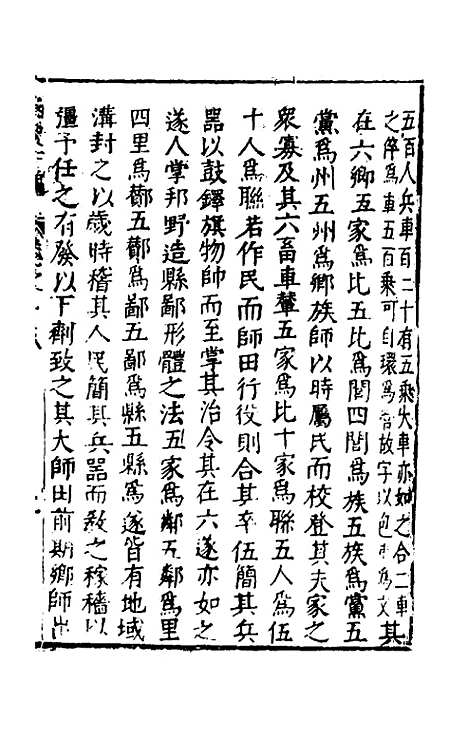 五百人兵車百二十有五乘大車亦如之合二車
之倅為車五百乘可自環為營故字以包車為文
其
在六鄉五家爲比五比爲閭四閭爲族五族爲黨五
黨爲州五州爲鄉族師以時屬民而校登其夫家之
衆寡及其六畜車輦五家爲比十家爲聯五人爲伍
十人爲聯若作民而師田行役則合其卒伍簡其兵
噐以鼓鐸旗物帥而至掌其治令其在六遂亦如之
遂人掌邦野造縣鄙形體之法五家爲鄰五鄰爲里
四里爲酇五酇爲鄙五鄙爲縣五縣爲遂皆有地域
溝封之以歲時稽其人民簡其兵噐而敎之稼穡以
彊予任之有發以下劑致之其大師田前期鄉師出